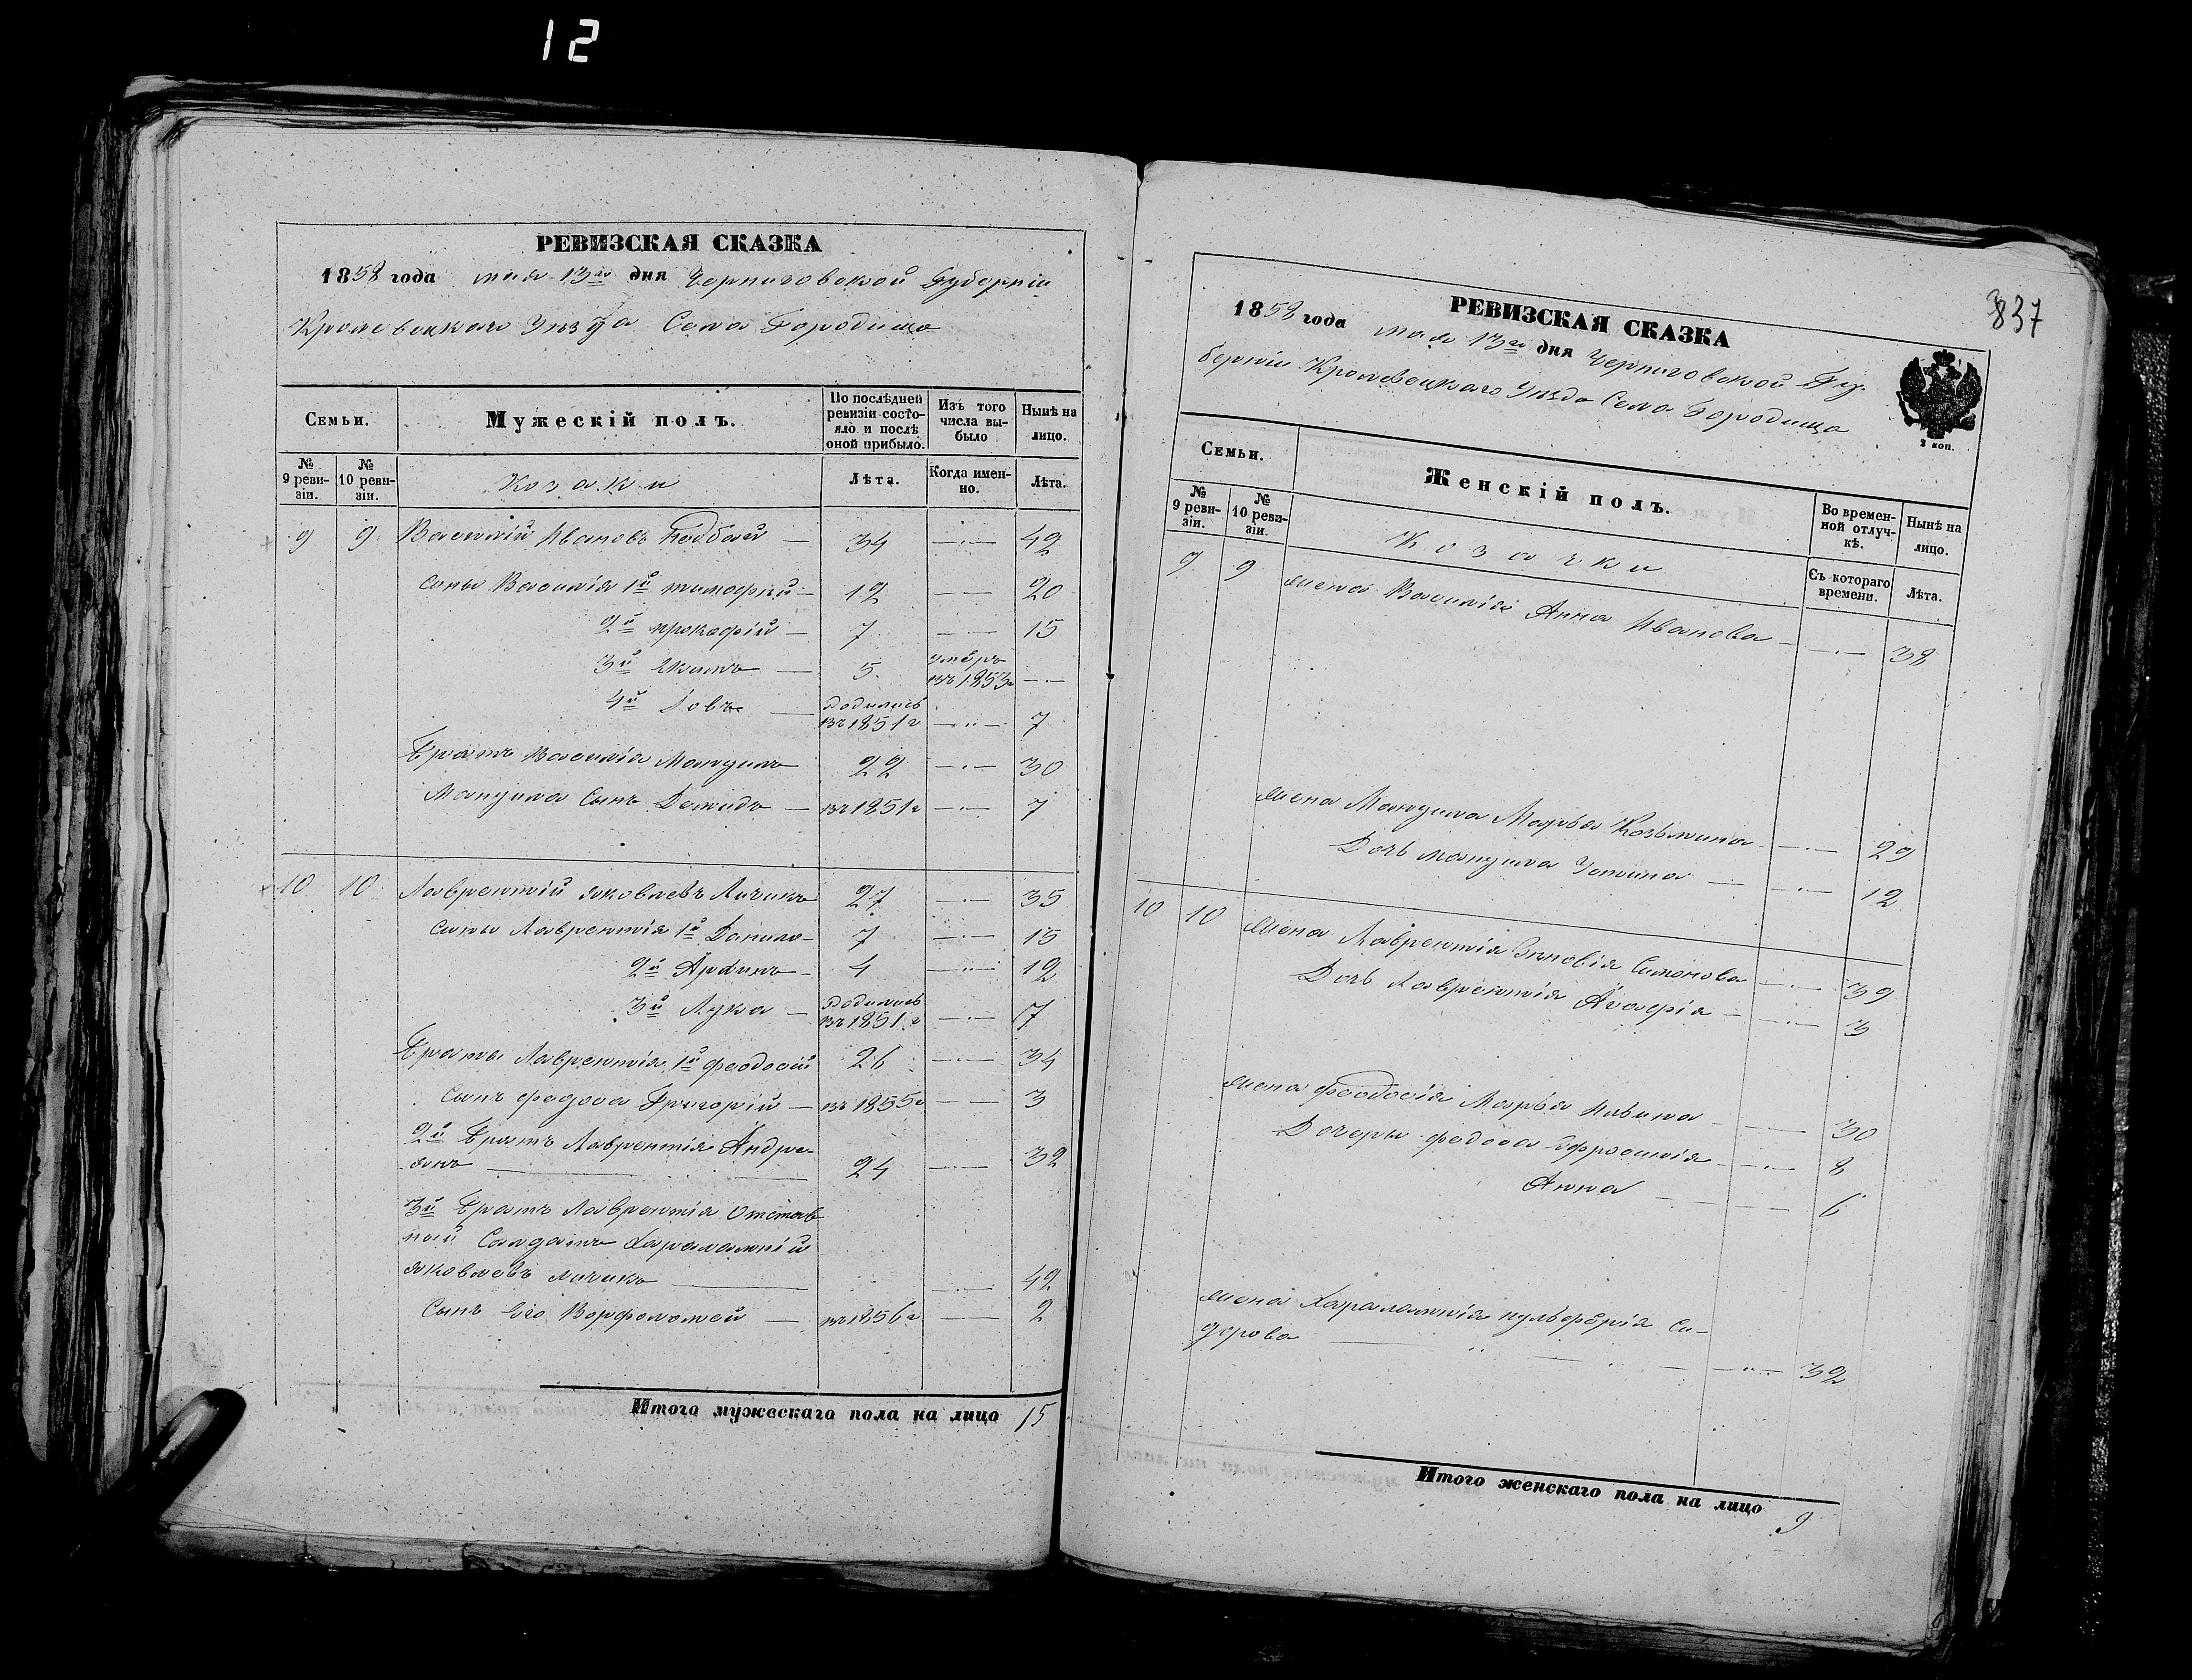 12
РЕВИЗСКАЯ СКАЗКА
1858 года мая 13го дня Черниговской Губерніи
Кролевецкаго Уѣзда Села Городища
Семьи.
Мужескій полъ.
По послѣдней ревизіи состояло и послѣ оной прибыло.
Изъ того числа выбыло
Нынѣ на лицо.
№ 9 ревизіи.
№ 10 ревизіи.
Козаки
Лѣта.
Когда именно.
Лѣта.
9 9 Василій Ивановъ — 34 —„— 42
сыны Василія 1й тимофѣй — 12 —„— 20
2й прокофій — 7 —„— 15
3й Якимъ — 5 умеръ въ 1853г —„—
4й Іовъ — Родились въ 1851г —„— 7
Братъ Василія Мануилъ 22 —„— 30
Мануила Сынъ Демидъ — въ 1851г —„— 7
10 10 Лаврентій яковлевъ Личикъ 27 —„— 35
Сыны Лаврентія 1й Данило — 7 —„— 15
2й Архипъ — 4 —„— 12
3й Лука — Родились въ 1851г —„— 7
Браты Лаврентія 1й феодосій 26 —„— 34
Сынъ федоса Григорій — въ 1855г —„— 3
2й Братъ Лаврентія Андре-
янъ — 24 —„— 32
3й Братъ Лаврентія Отстав
ной Салдатъ Харалампій
яковлевъ личикъ — —„— 42
Сынъ Его Варфоломей — въ 1856г — 2
Итого мужескаго пола на лицо 15
837
РЕВИЗСКАЯ СКАЗКА
1858 года мая 13го дня Черниговской Гу-
берніи Кролевецкаго Уѣзда Села Городища
2 коп.
Семьи.
Женскій полъ.
Во временной отлучкѣ.
Нынѣ на лицо.
№ 9 ревизіи.
№ 10 ревизіи.
Козачки
Съ котораго времени.
Лѣта.
9 9 жена Василія Анна Иванова — —„— 38
жена Мануила Марья Козьмина —„— 29
Дочь мануила Устина — —„— 12
10 10 жена Лаврентія Зиновія Симонова —„— 39
Дочь Лаврентія Агафія — —„— 3
жена феодосія Марья — 30
Дочеры федоса Ефросинія —„— 8
Анна — 6
жена Харалампія пульферія Си-
дорова — —„— 32
Итого женскаго пола на лицо 9